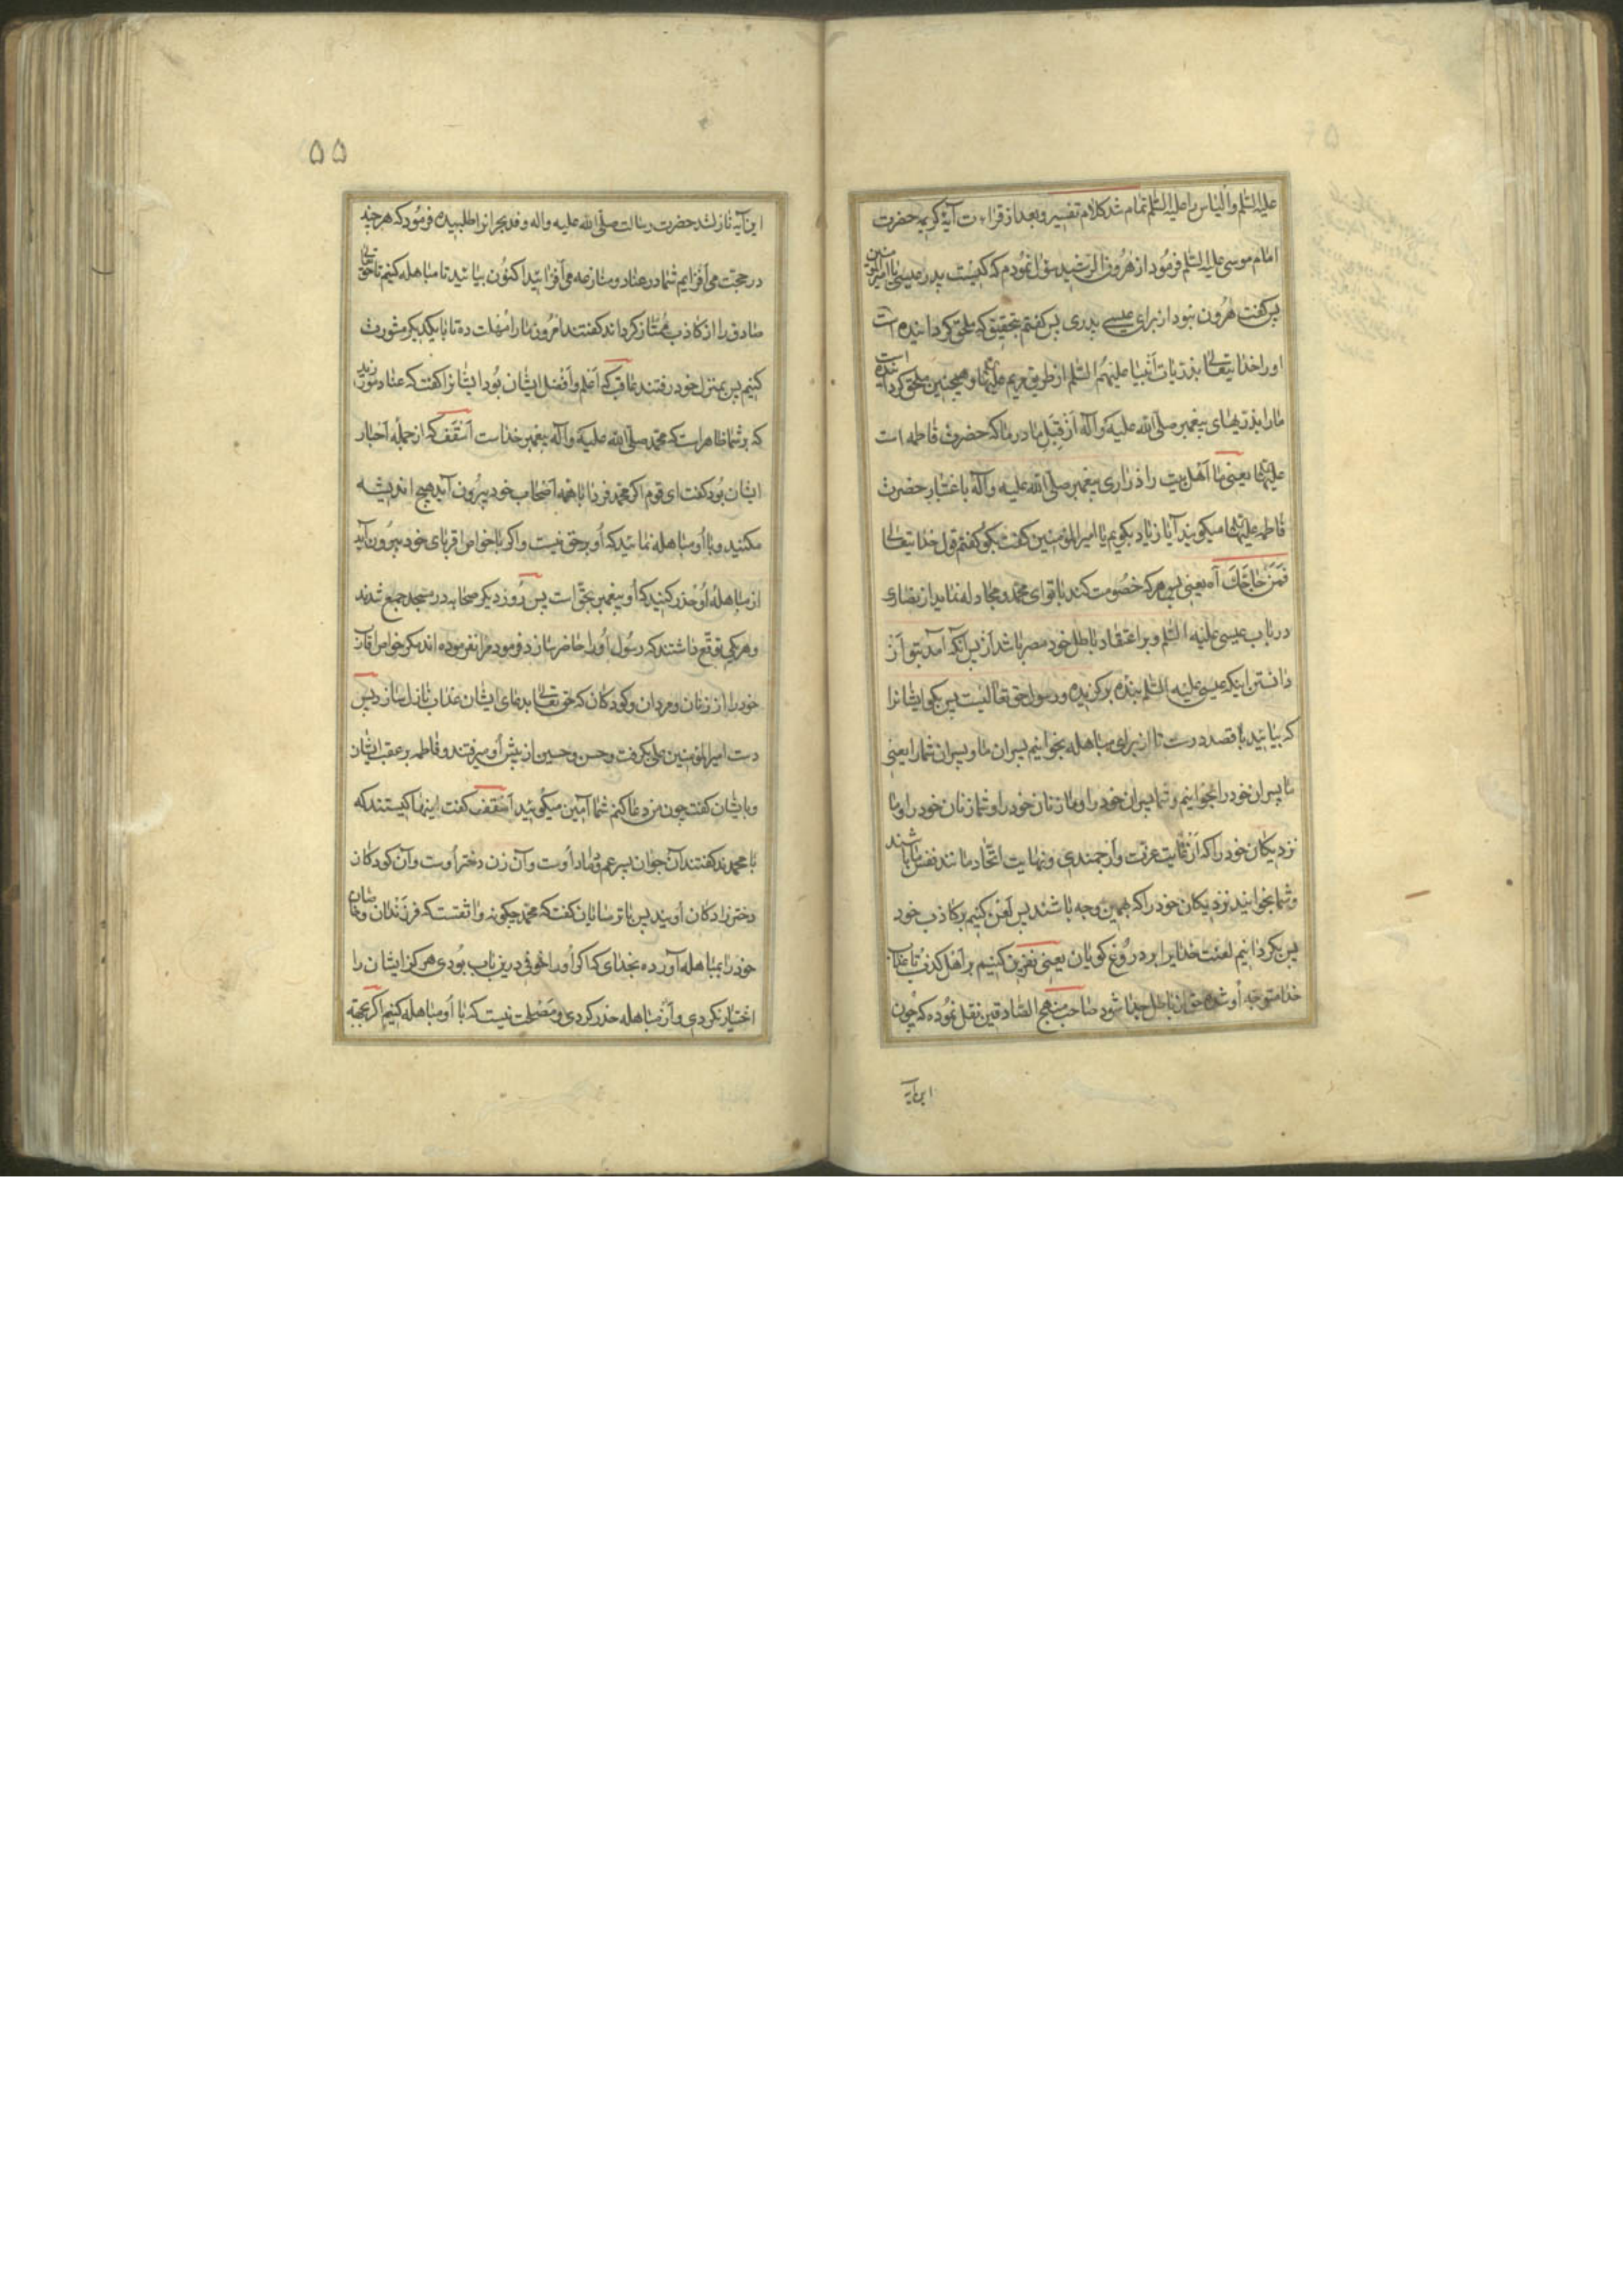 علیه السلم والیاس را علیه السلم تمام شد کلام تفسیر و بعد از قراءت آیهٔ کریمه حضرت
امام موسی علیه السلم فرمود از هرون الرشید سؤل نمودم که کیست پدر عیسی یا امیر المؤمنین
پس کفت هرون نبود از برای عیسی پدری پس کفتم بتحقیق که ملحق کردانیده است
او را خدایتعالی بذریات انبیا علیهم السلم از طریق مریم علیها و همچنین ملحق کردانیده است
ما را بذریهای پیغمبر صلی الله علیه وآله از قبل مادر ما که حضرت فاطمه است
علیها یعنی ما اهل بیت را ذراری پیغمبر صلی الله علیه وآله باعتبار حضرت
فاطمه علیها میکویند آیا زیاد بکویم یا امیر المؤمنین کفت بکو کفتم قول خدایتعالی
فمن حاجک آه یعنی پس هر که خصومت کند با تو ای محمد و مجادله نماید از نصاری
در باب عیسی علیه السلم و بر اعتقاد باطل خود مصر باشد از پس آنکه آمد بتو از
دانستن اینکه عیسی علیه السلم بنده برکزیده و رسول حق تعالیست پس بکو ایشانرا
که بیائید با قصد درست تا از برای مباهله بخوانیم پسران ما و پسران شما را یعنی
ما پسران خود را بخوانیم و شما پسران خود را و ما زنان خود را و شما زنان خود را و ما
نزدیکان خود را که از غایت عزت و ارجمندی و نهایت اتحاد مانند نفس ما باشند
و شما بخوانید نزدیکان خود را که همین وجه باشند پس لعن کنیم بر کاذب خود
پس بکردانیم لعنت خدایرا بر دروغ کویان یعنی نفرین کنیم بر اهل کذب تا عذاب
خدا متوجه او شده حق از باطل جدا شود صاحب منهج الصادقین نقل نموده که چون
این آیه
۵۵
این آیه نازل شد حضرت رسالت صلی الله علیه واله وفد نجرانرا طلبیده فرمود که هر چند
در حجت می افزایم شما در عناد و منازعه می افزائید اکنون بیائید تا مباهله کنیم تا حق تعالی
صادق را از کاذب ممتاز کرداند کفتند امروز ما را مهلت ده تا با یکدیکر مشورت
کنیم پس بمنزل خود رفتند عاقب که اعلم و افضل ایشان بود ایشانرا کفت که عناد مورزید
که بر شما ظاهر است که محمد صلی الله علیه وآله پیغمبر خداست اسقف که از جمله احبار
ایشان بود کفت ای قوم اکر محمد فردا با همه اصحاب خود بیرون آید هیچ اندیشه
مکنید و با او مباهله نمائید که او بر حق نیست و اکر با خواص اقربای خود بیرون آید
از مباهلهٔ او حذر کنید که او پیغمبر بحق است پس روز دیکر صحابه در مسجد جمع شدند
و هر یکی توقع داشتند که رسول او را حاضر سازد فرمود مرا نفرموده اند مکر خواص اقارب
خود را از زنان و مردان و کودکان که حق تعالی بدعای ایشان عذاب نازل سازد پس
دست امیر المؤمنین علی بکرفت و حسن و حسین از پیش او میرفتند و فاطمه بر عقب ایشان
و بایشان کفت چون من دعا کنم شما آمین میکوئید اسقف کفت اینها کیستند که
با محمدند کفتند آن جوان پسر عم و داماد اوست و آن زن دختر اوست و آن کودکان
دختر زادکان اویند پس با ترسایان کفت که محمد چکونه واثقست که فرزندان و خاصان
خود را بمباهله آورده بخدای که اکر او را خوفی درین باب بودی هرکز ایشان را
اختیار نکردی و از مباهله حذر کردی و مصلحت نیست که با او مباهله کنیم اکر بجهة